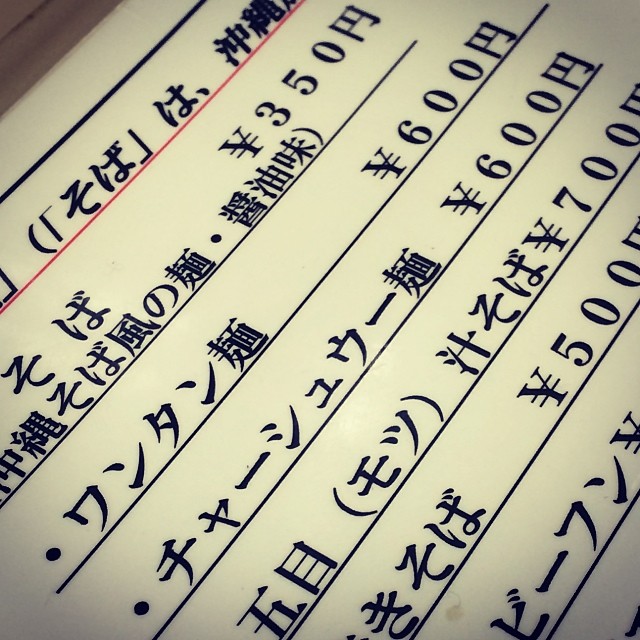 」（「そば」は、沖縄
そば ￥350円
沖縄そば風の麺・醤油味）
・ワンタン麺 ￥600円
・チャーシュウー麺 ￥600円
五目（モツ）汁そば￥700円
きそば ￥500
ビーフン￥